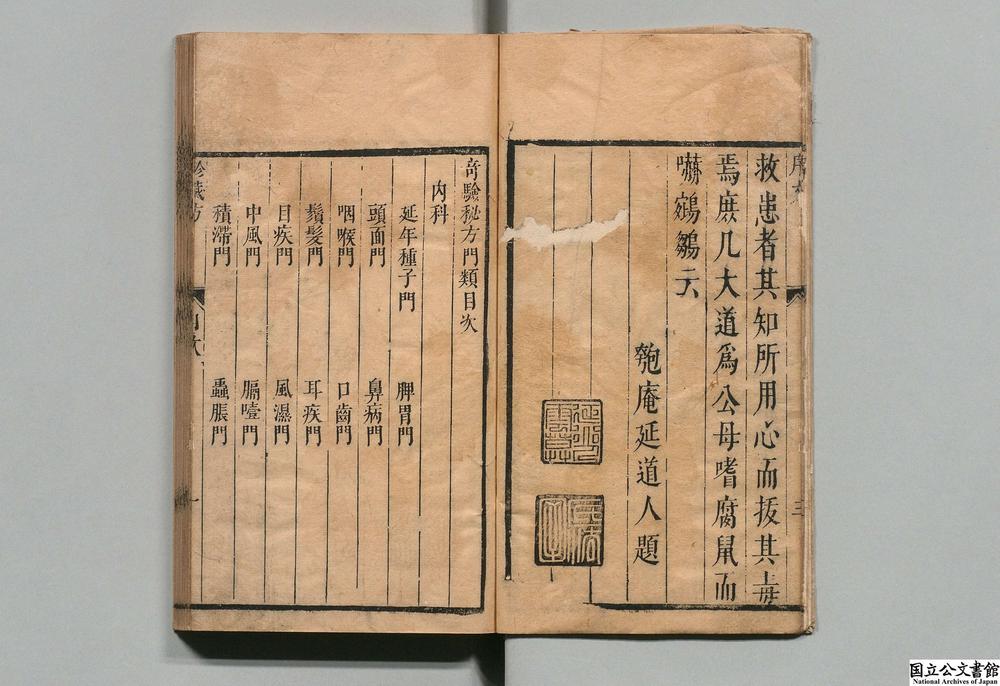 救患者其知所用心而拔其毒
焉庶几大道爲公毋嗜腐鼠而
嚇鵷鶵云
匏庵延道人題
三
奇驗秘方門類目次
內科
延年種子門 脾胃門
頭面門 鼻病門
咽喉門 口齒門
鬚髮門 耳疾門
目疾門 風濕門
中風門 膈噎門
積滯門 蠱脹門
珍藏方
目次
一
国立公文書館
National Archives of Japan